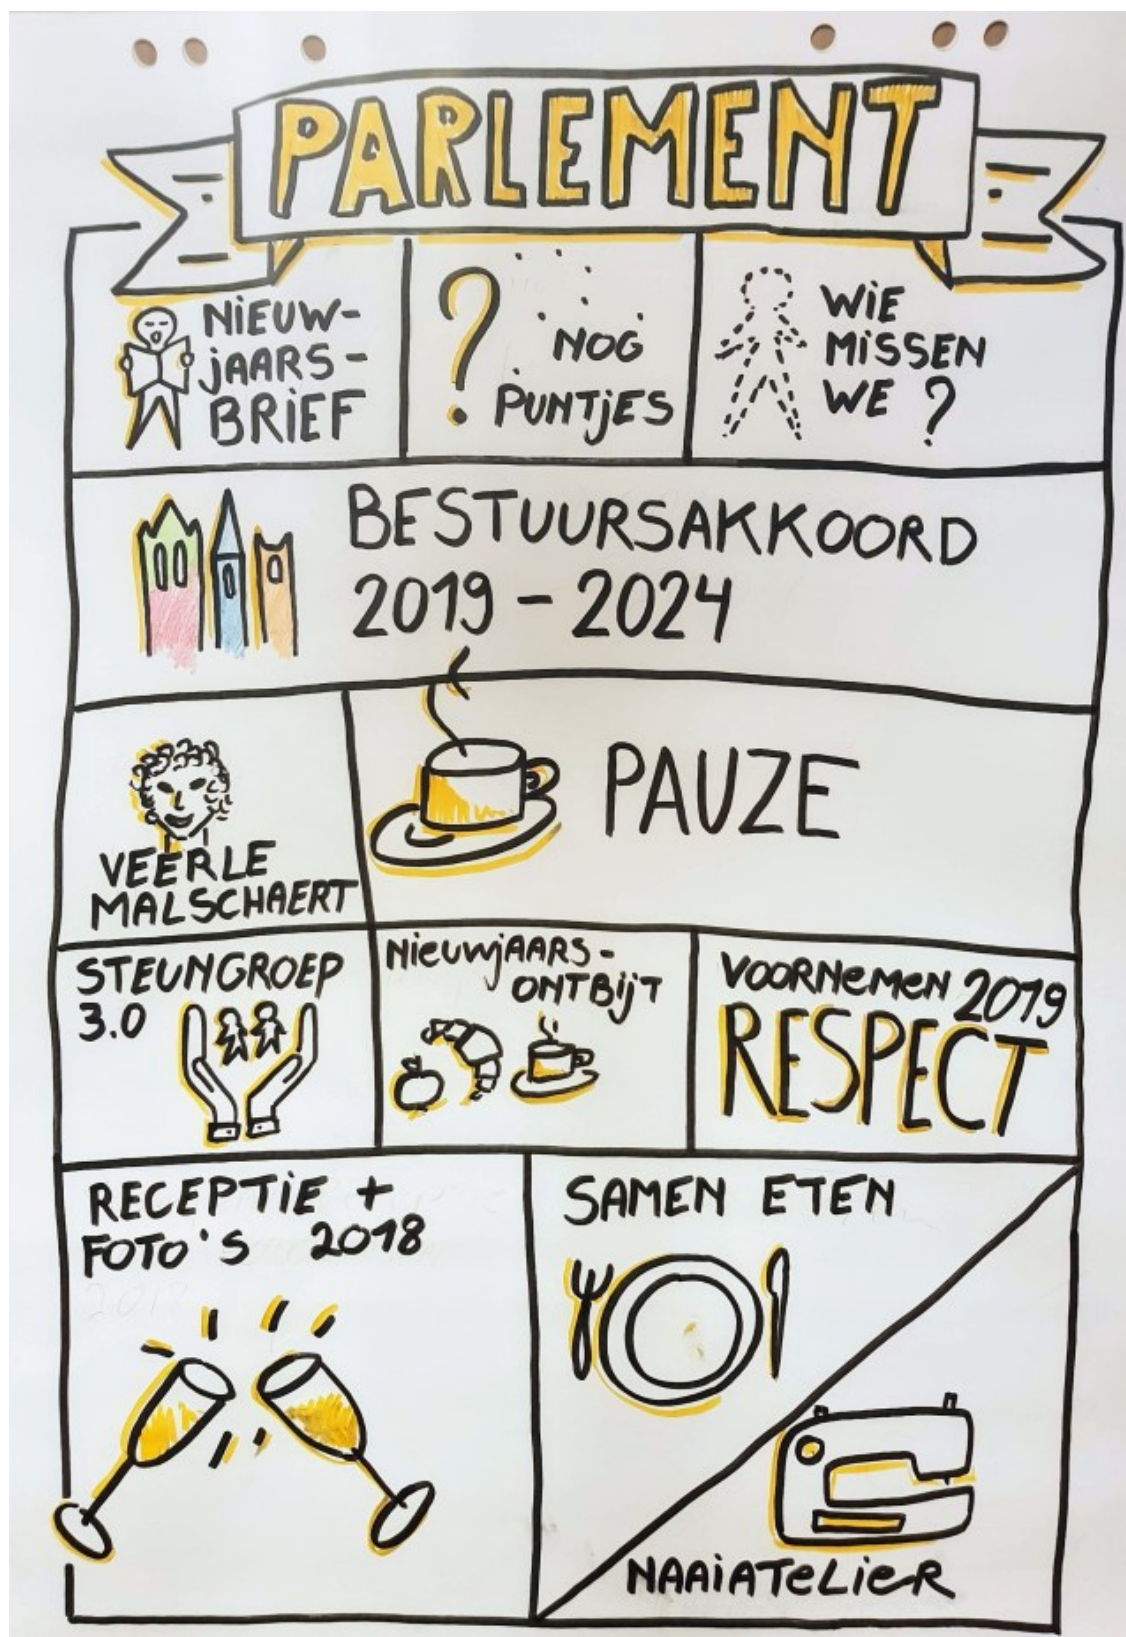 PARLEMENT
NIEUW-
JAARS-
BRIEF
? NOG
PUNTJES
WIE
MISSEN
WE ?
BESTUURSAKKOORD
2019 - 2024
VEERLE
MALSCHAERT
PAUZE
STEUNGROEP
3.0
NIEUWJAARS-
ONTBIJT
VOORNEMEN 2019
RESPECT
RECEPTIE +
FOTO'S 2018
SAMEN ETEN
NAAIATELIER